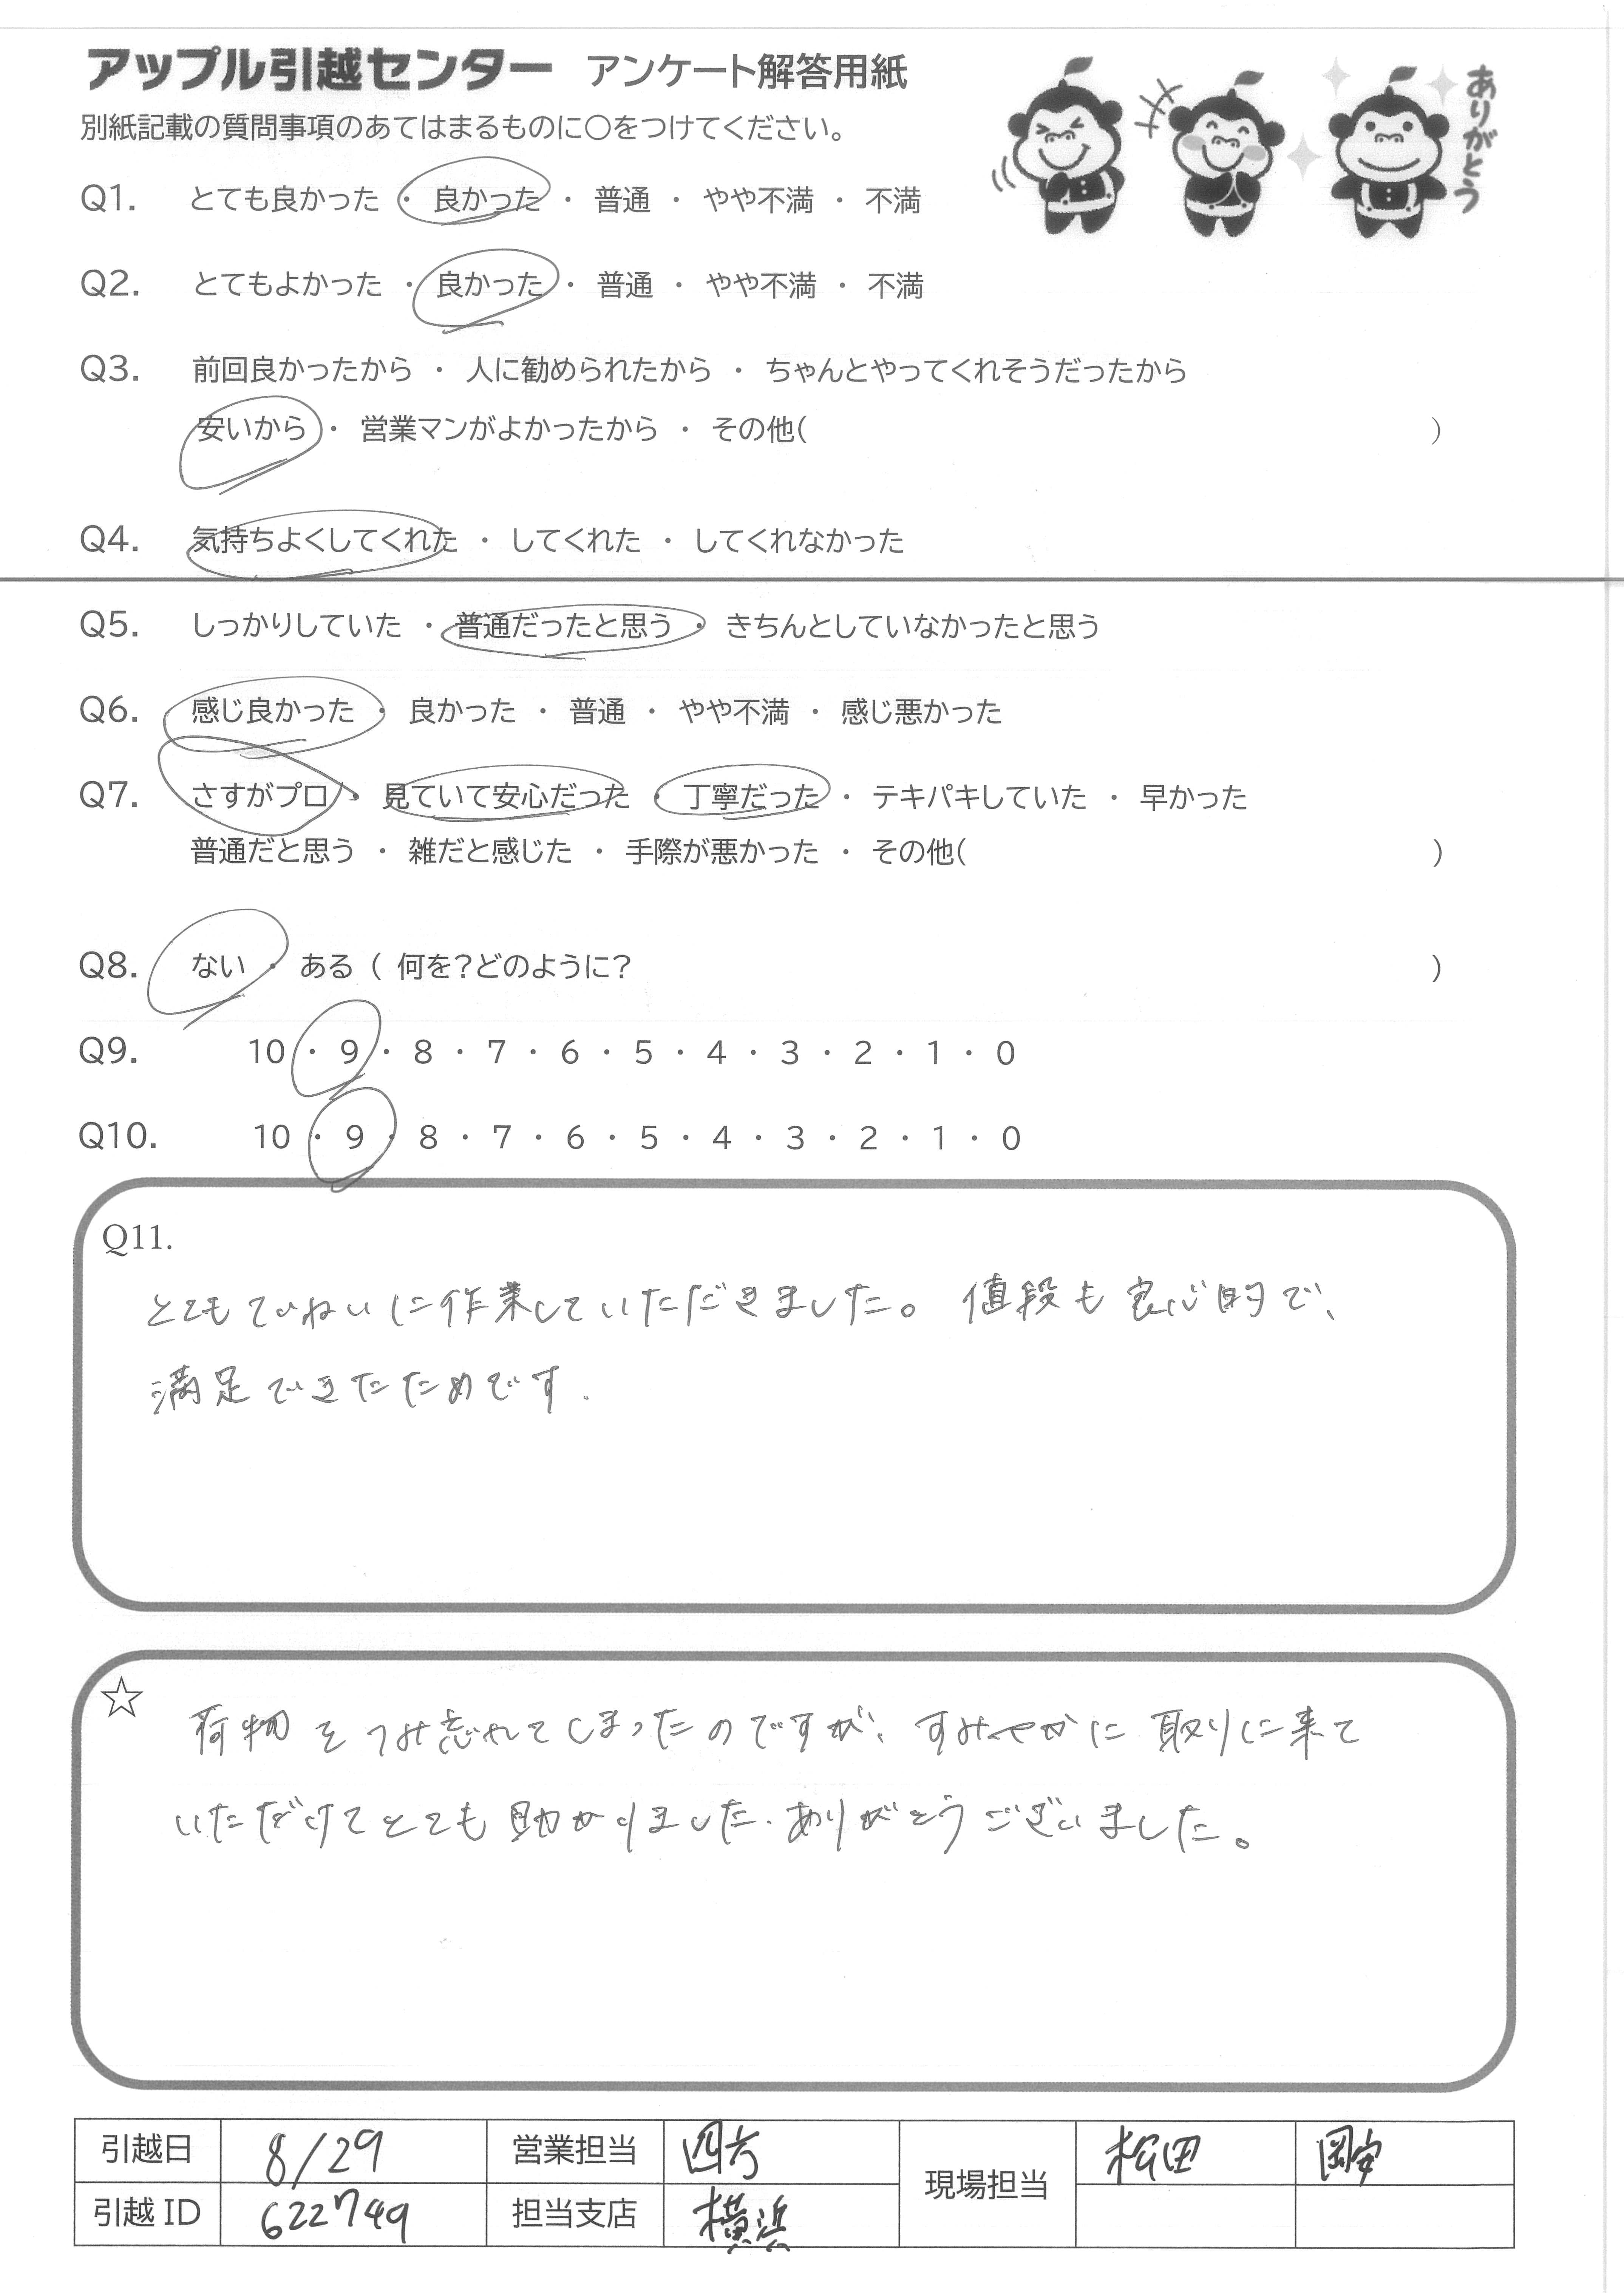 アップル引越センター アンケート解答用紙
ありがとう
別紙記載の質問事項のあてはまるものに○をつけてください。
Q1. とても良かった ・ 良かった ・ 普通 ・ やや不満 ・ 不満
Q2. とてもよかった ・ 良かった ・ 普通 ・ やや不満 ・ 不満
Q3. 前回良かったから ・ 人に勧められたから ・ ちゃんとやってくれそうだったから
安いから ・ 営業マンがよかったから ・ その他( )
Q4. 気持ちよくしてくれた ・ してくれた ・ してくれなかった
Q5. しっかりしていた ・ 普通だったと思う ・ きちんとしていなかったと思う
Q6. 感じ良かった ・ 良かった ・ 普通 ・ やや不満 ・ 感じ悪かった
Q7. さすがプロ ・ 見ていて安心だった ・ 丁寧だった ・ テキパキしていた ・ 早かった
普通だと思う ・ 雑だと感じた ・ 手際が悪かった ・ その他( )
Q8. ない ・ ある ( 何を?どのように? )
Q9. 10 ・ 9 ・ 8 ・ 7 ・ 6 ・ 5 ・ 4 ・ 3 ・ 2 ・ 1 ・ 0
Q10. 10 ・ 9 ・ 8 ・ 7 ・ 6 ・ 5 ・ 4 ・ 3 ・ 2 ・ 1 ・ 0
Q11.
とてもていねいに作業していただきました。値段も良心的で、
満足できたためです.
☆ 荷物をつみ忘れてしまったのですが、すみやかに取りに来て
いただけてとても助かりました. ありがとうございました。
引越日 8/29 営業担当 四方 現場担当 松田 岡安
引越ID 622749 担当支店 横浜